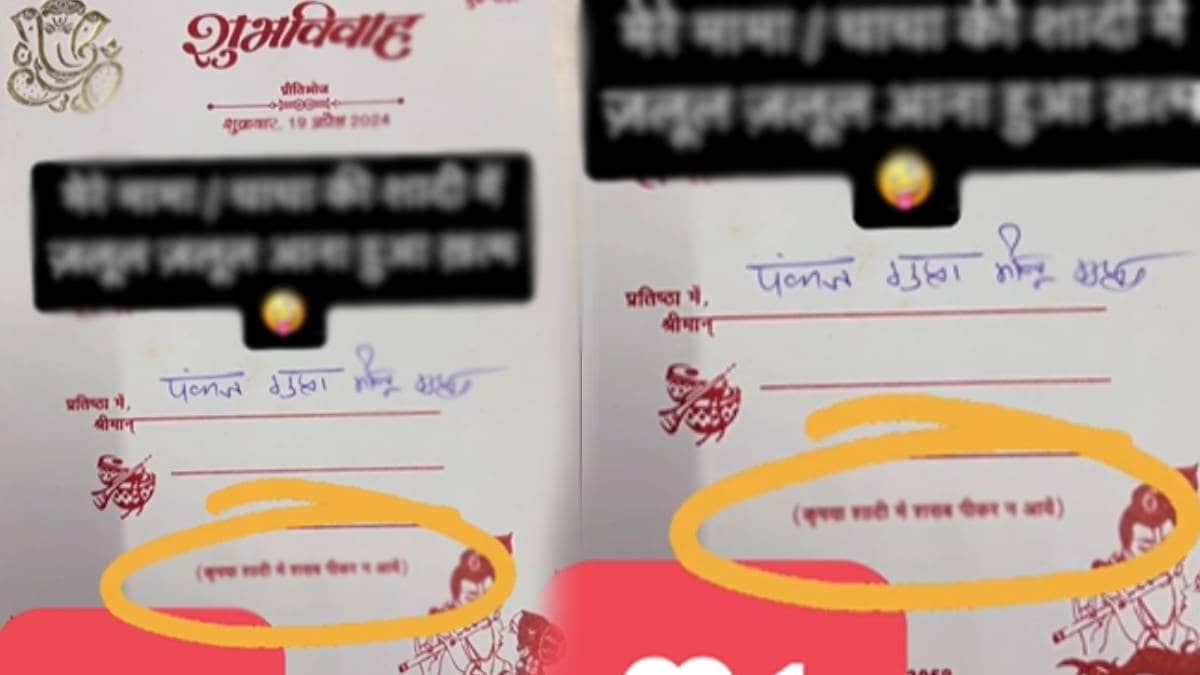 शुभविवाह
प्रीतिभोज
शुक्रवार, 19 अप्रैल 2024
मेरे मामा / चाचा की शादी में
ज़लूल ज़लूल आना हुआ ख़त्म
पंकज गुप्ता
प्रतिष्ठा में,
श्रीमान्
(कृपया शादी में शराब पीकर न आयें)
मेरे मामा / चाचा की शादी में
ज़लूल ज़लूल आना हुआ ख़त्म
पंकज गुप्ता
प्रतिष्ठा में,
श्रीमान्
(कृपया शादी में शराब पीकर न आयें)